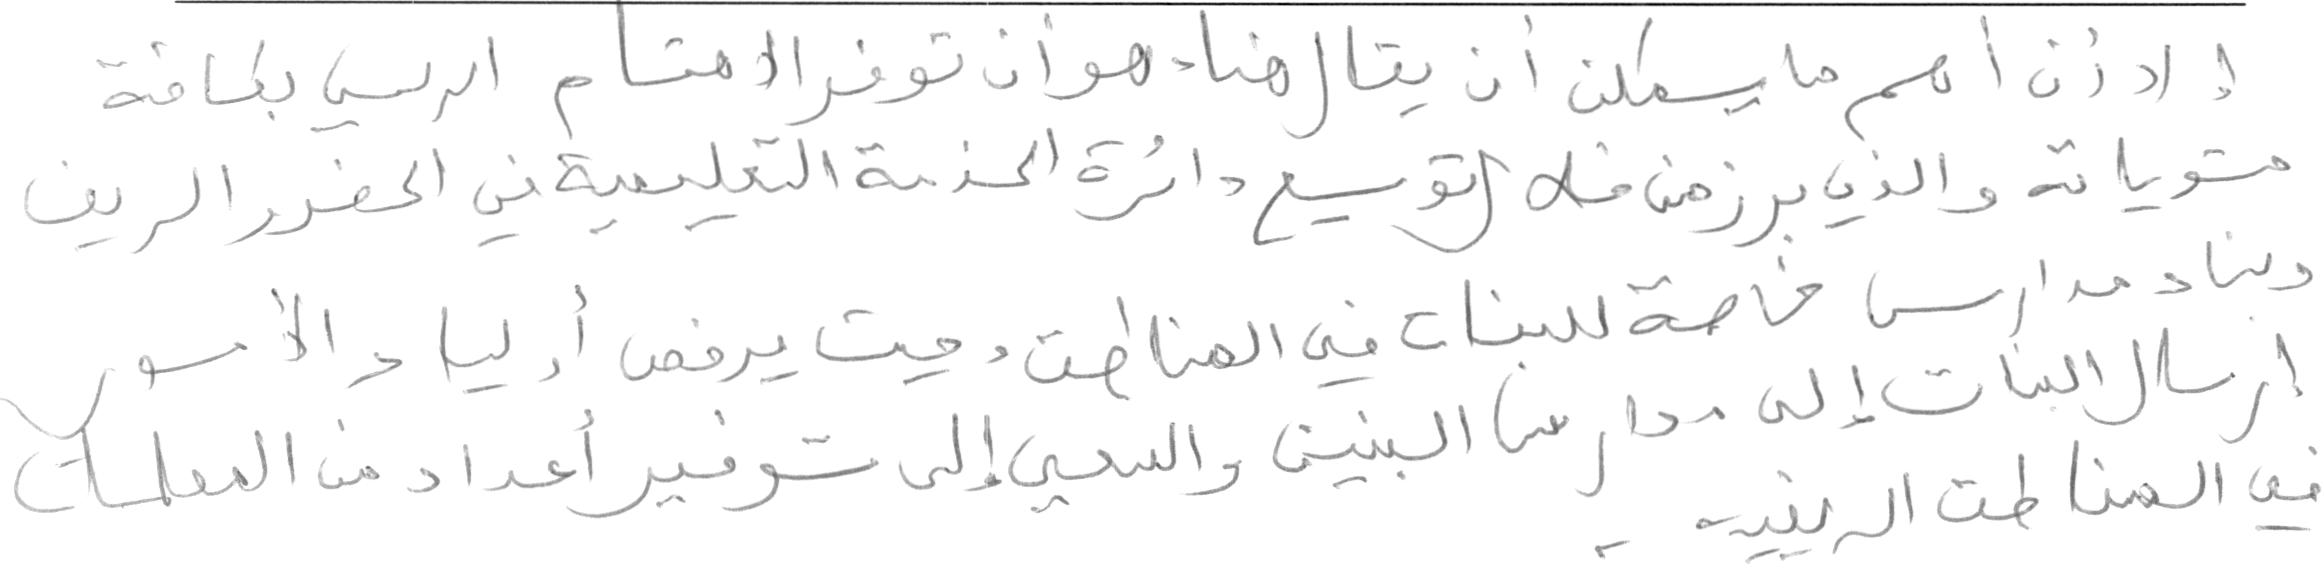 إلا أن أهم ما يمكن أن يقال هنا، هو أن توفر الاهتمام الرسمي بكافة
مستوياته والذي برز من خلال توسيع دائرة الخدمة التعليمية في الحضر والريف
وبناء مدارس خاصة للبنات في المناطق، حيث يرفض أولياء الأمور
إرسال البنات إلى مدارس البنين والسعي إلى توفير أعداد من المعلمات
في المناطق الريفية .